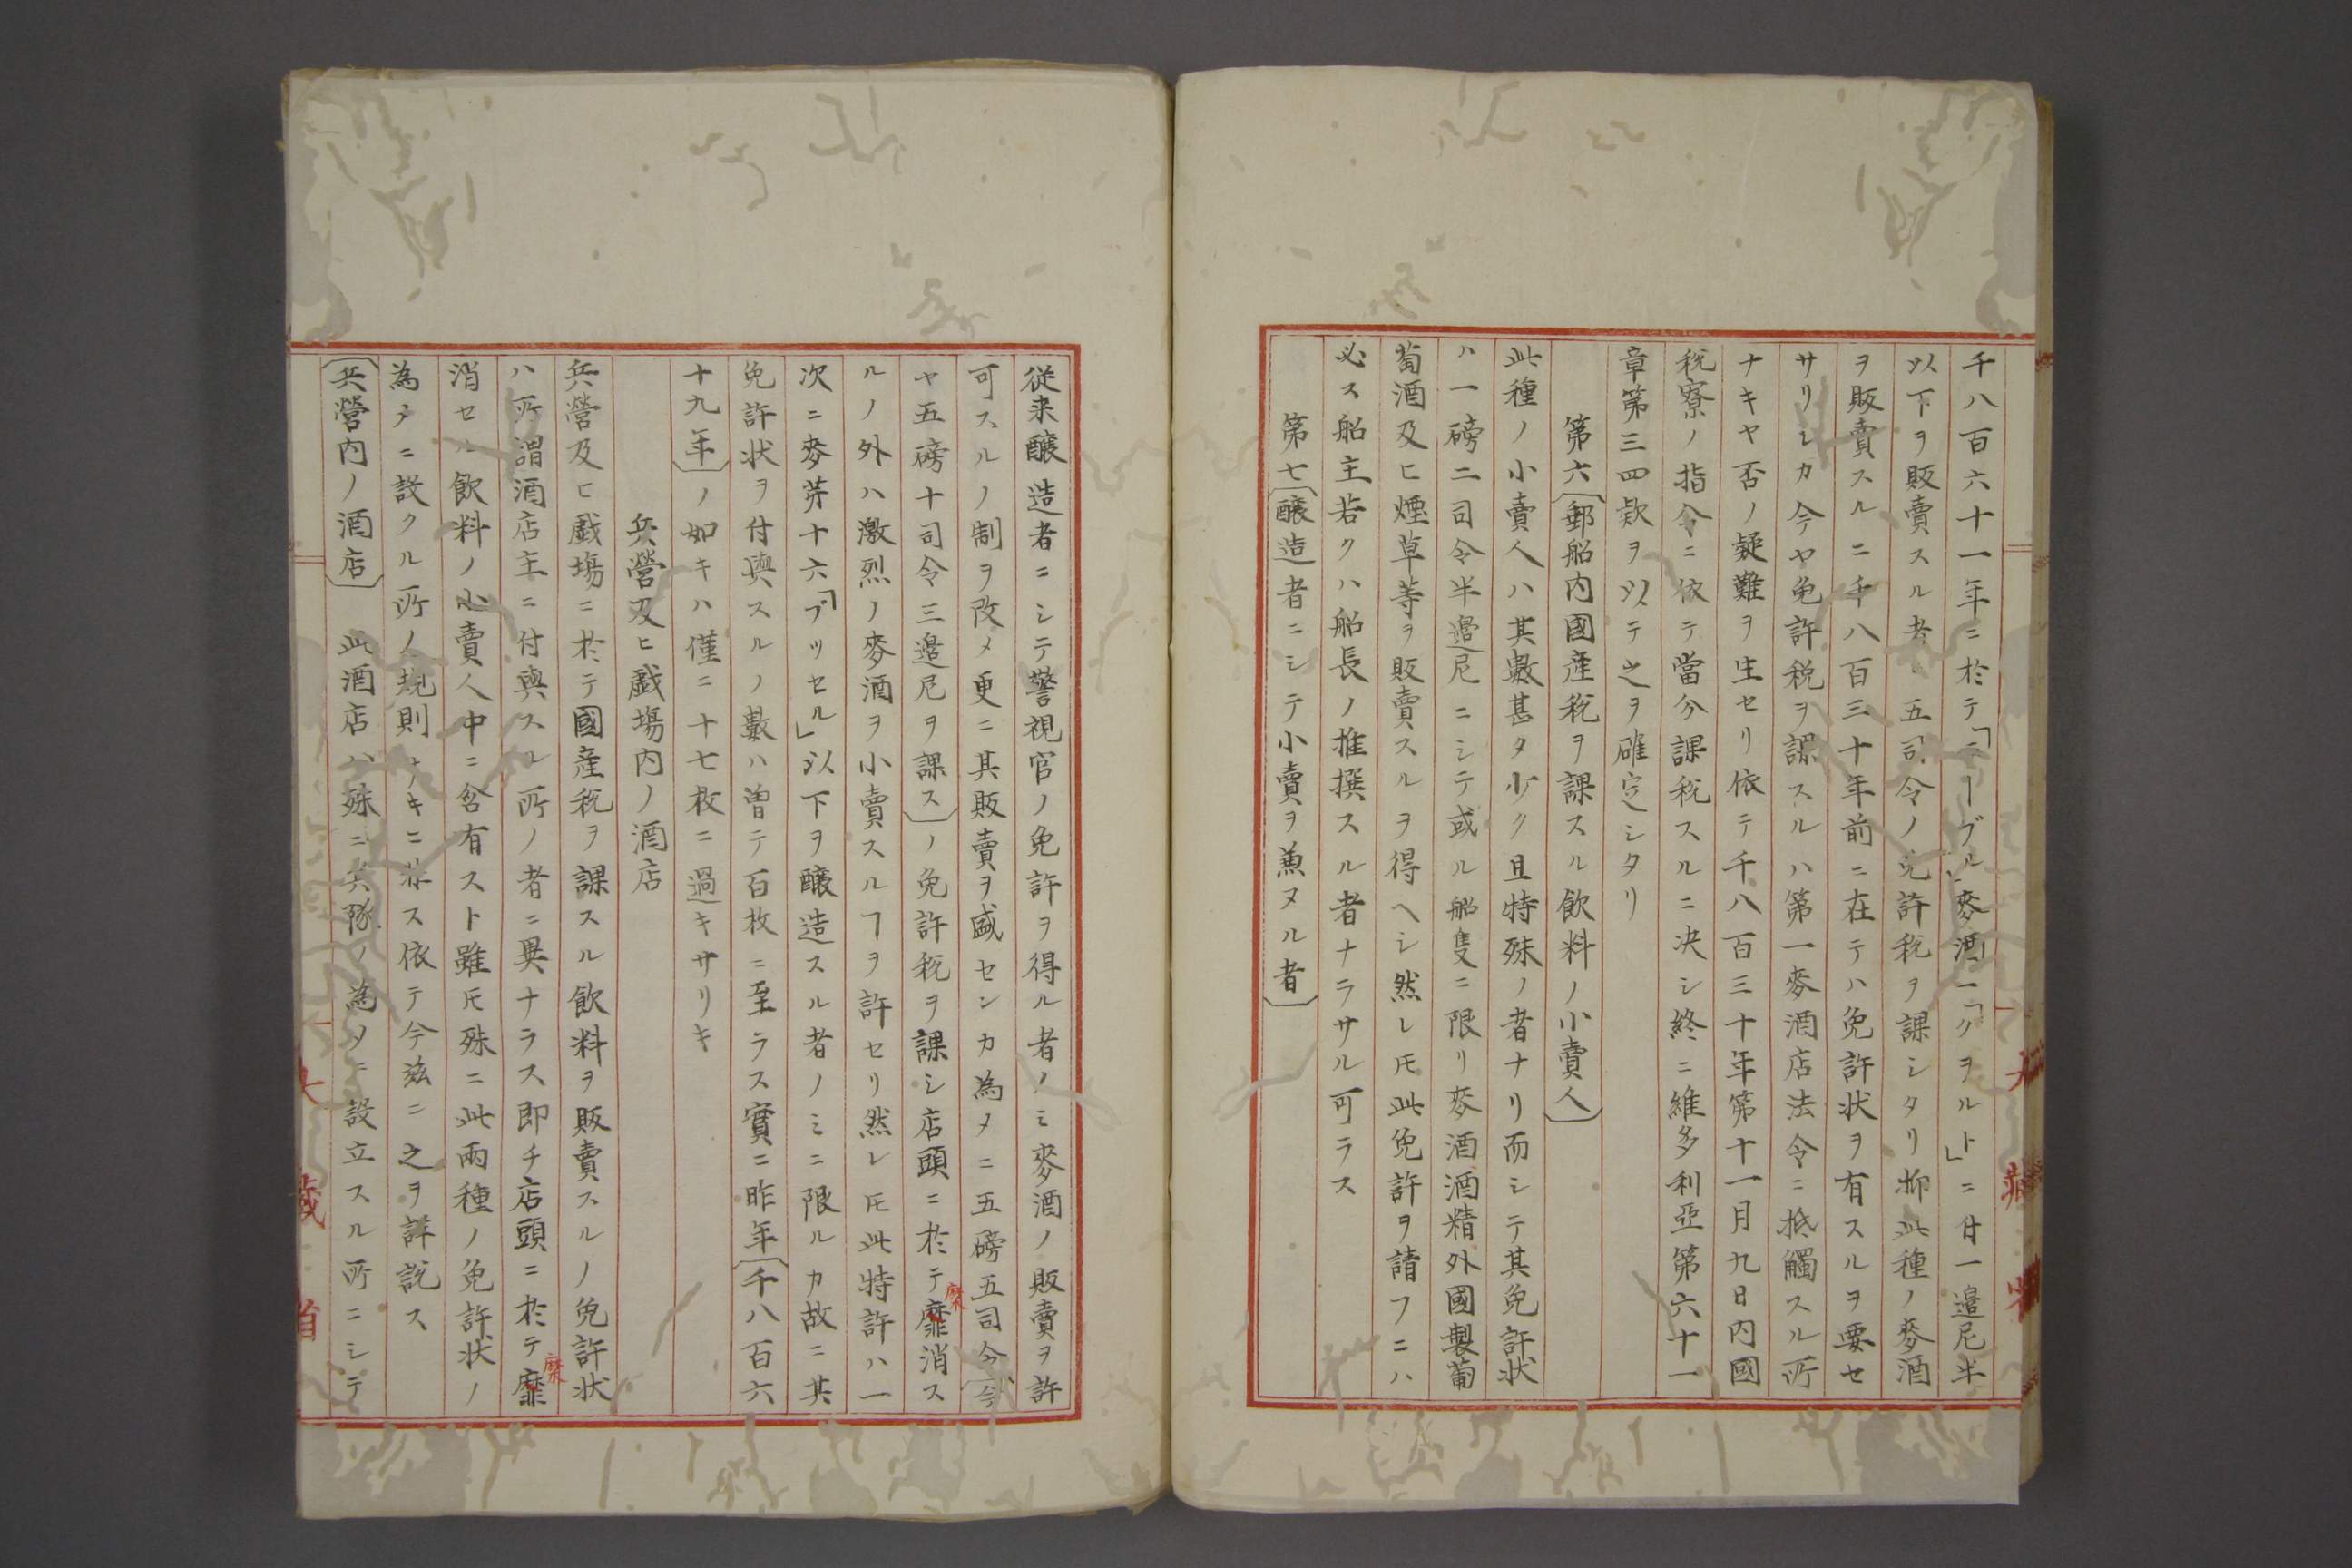 千八百六十一年ニ於テ「テーブル」麥酒一「クヲルト」ニ廿一邉尼半
以下ヲ販賣スル者ハ五司令ノ免許税ヲ課シタリ抑此種ノ麥酒
ヲ販賣スルニ千八百三十年前ニ在テハ免許状ヲ有スルヲ要セ
サリシカ今ヤ免許税ヲ課スルハ第一麥酒店法令ニ抵觸スル所
ナキヤ否ノ疑難ヲ生セリ依テ千八百三十年第十一月九日内國
税寮ノ指令ニ依テ當分課税スルニ决シ終ニ維多利亞第六十一
章第三四款ヲ以テ之ヲ確定シタリ
第六〔郵船内國産税ヲ課スル飲料ノ小賣人〕
此種ノ小賣人ハ其數甚タ少ク且特殊ノ者ナリ而シテ其免許状
ハ一磅二司令半邉尼ニシテ或ル船隻ニ限リ麥酒酒精外國製葡
萄酒及ヒ煙草等ヲ販賣スルヲ得ヘシ然レ𪜈此免許ヲ請フニハ
必ス船主若クハ船長ノ推撰スル者ナラサル可ラス
第七〔醸造者ニシテ小賣ヲ兼ヌル者〕
従来醸造者ニシテ警視官ノ免許ヲ得ル者ノミ麥酒ノ販賣ヲ許
可スルノ制ヲ改メ更ニ其販賣ヲ盛センカ為メニ五磅五司令〔今
ヤ五磅十司令三邉尼ヲ課ス〕ノ免許税ヲ課シ店頭ニ於テ靡消ス
糜
ルノ外ハ激烈ノ麥酒ヲ小賣スルヿヲ許セリ然レ𪜈此特許ハ一
次ニ麥芽十六「ブッセル」以下ヲ醸造スル者ノミニ限ルカ故ニ其
免許状ヲ付與スルノ數ハ曽テ百枚ニ至ラス實ニ昨年〔千八百六
十九年〕ノ如キハ僅ニ十七枚ニ過キサリキ
兵營及ヒ戯塲内ノ酒店
兵營及ヒ戯塲ニ於テ國産税ヲ課スル飲料ヲ販賣スルノ免許状
ハ所謂酒店主ニ付與スル所ノ者ニ異ナラス即チ店頭ニ於テ靡
糜
消セル飲料ノ小賣人中ニ含有スト雖𪜈殊ニ此兩種ノ免許状ノ
為メニ設クル所ノ規則ナキニ非ス依テ今茲ニ之ヲ詳説ス
〔兵營内ノ酒店〕此酒店ハ殊ニ兵隊ノ為メニ設立スル所ニシテ